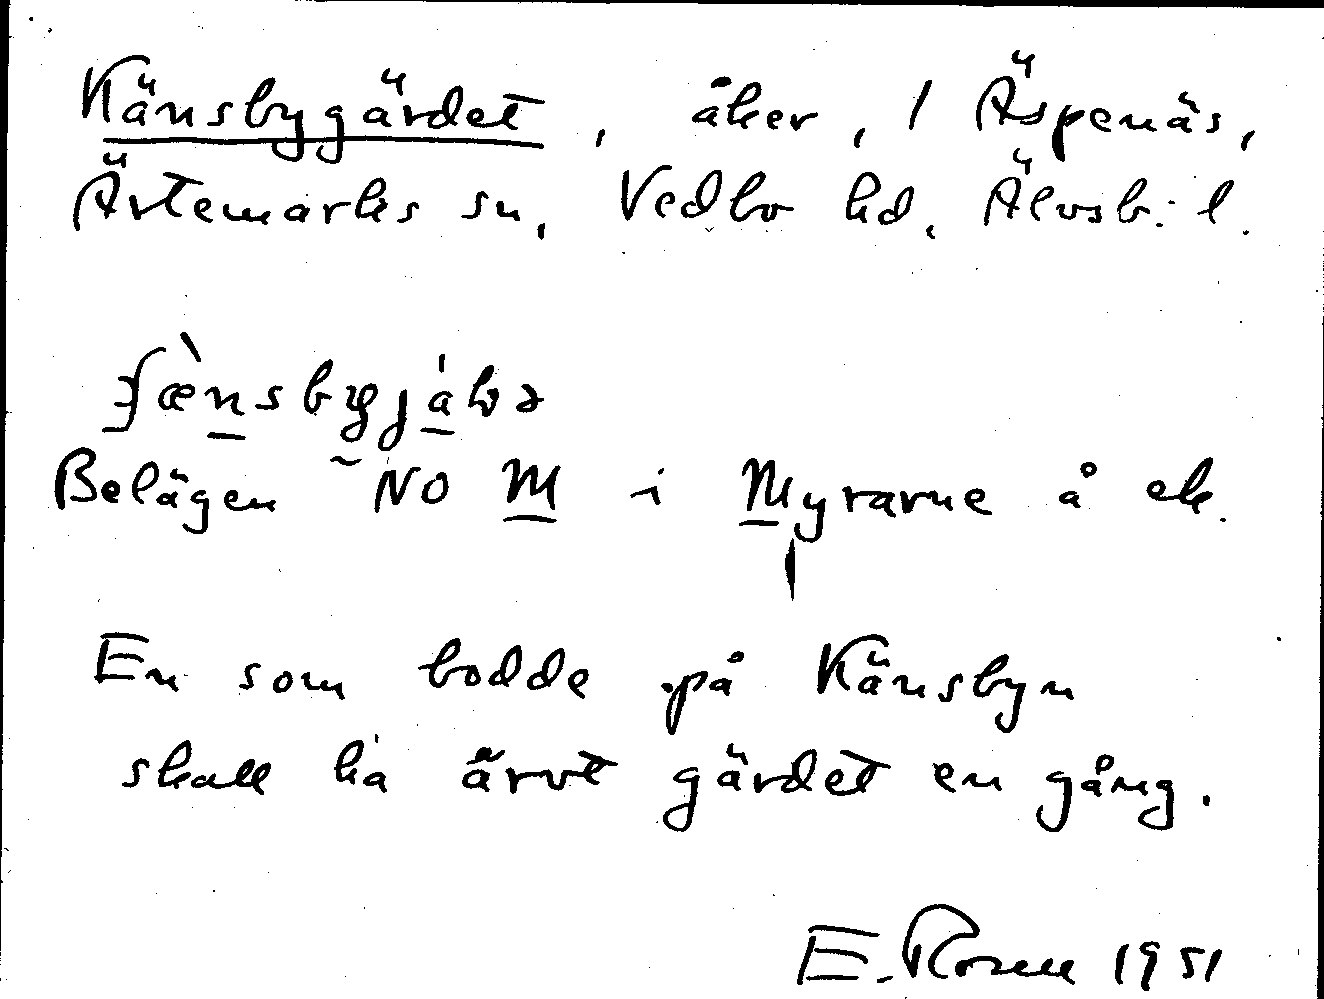 Känsbygärdet, åker, 1 Äspenäs,
Ärtemarks sn, Vedbo hd, Älvsb. l.
Belägen NO M i Myrarne å ek.
En som bodde på Känsbyn
skall ha ärvt gärdet en gång.
E. Rosell 1951